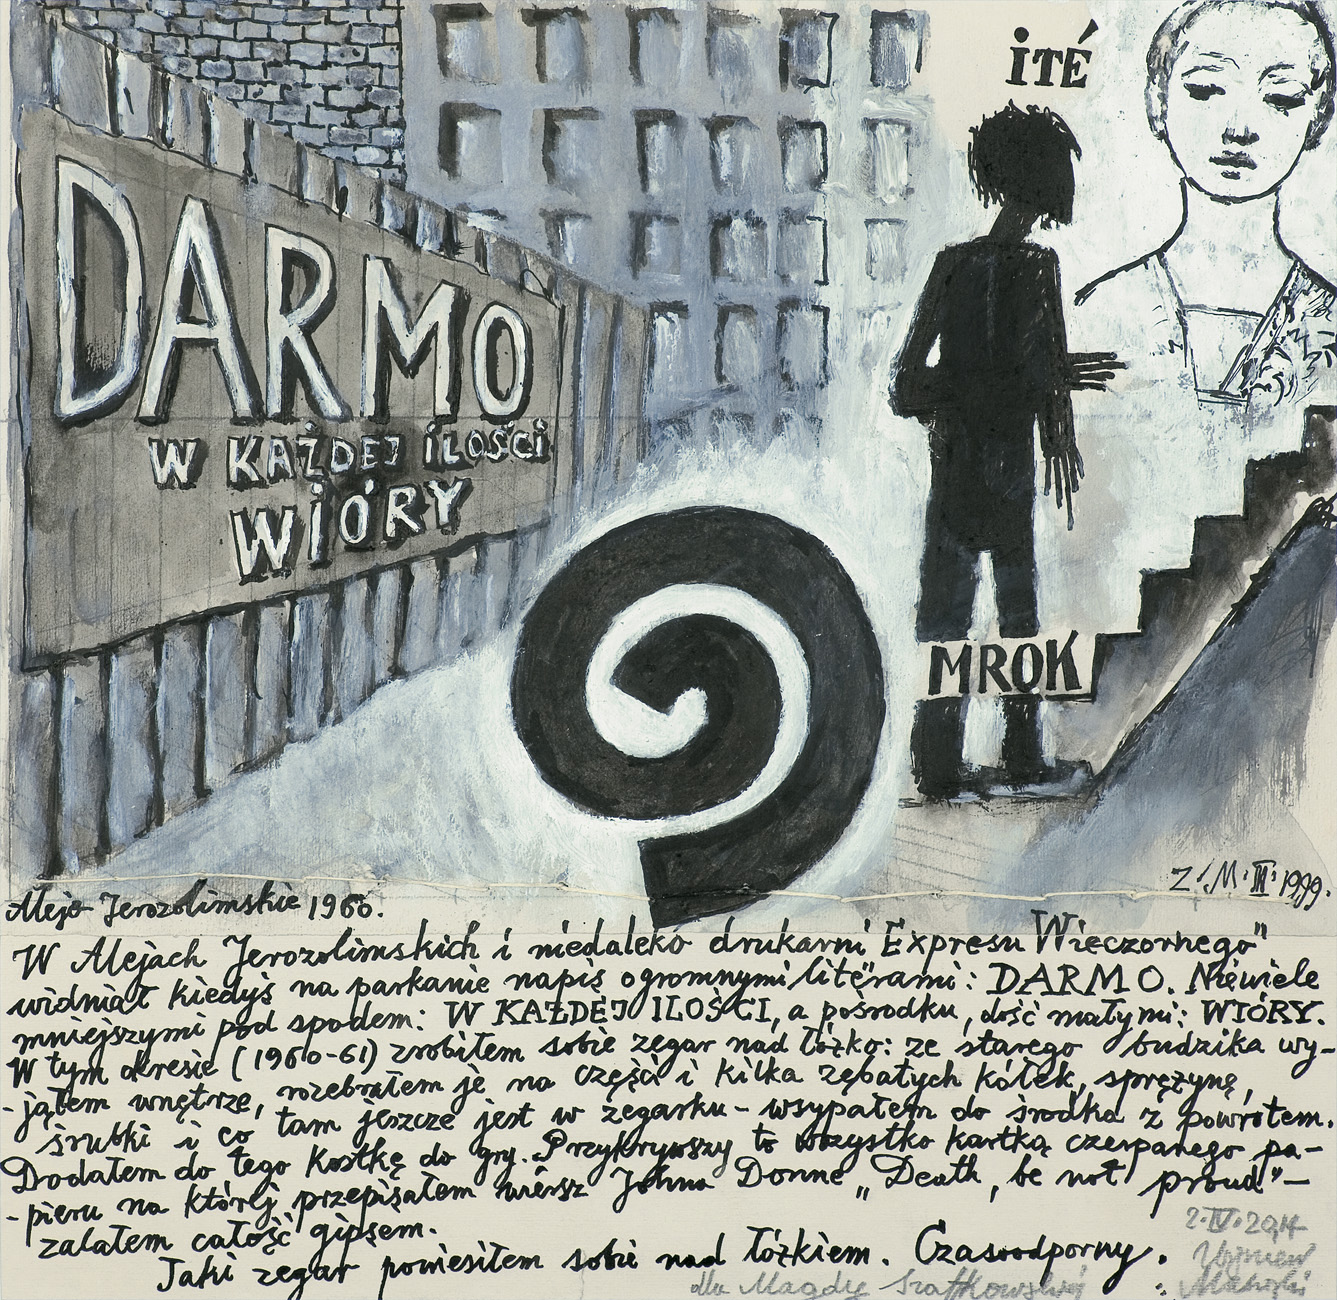 iTÉ
DARMO
W KAŻDEJ iLOŚCi
WiÓRY
MROK
Z. M. III. 1999.
Aleje Jerozolimskie 1960.
W Alejach Jerozolimskich i niedaleko drukarni Expresu Wieczornego"
widniał kiedyś na parkanie napis ogromnymi literami: DARMO. Niewiele
mniejszymi pod spodem: W KAŻDEJ ILOŚCI, a pośrodku, dość małymi: WIÓRY.
W tym okresie (1960-61) zrobiłem sobie zegar nad łóżko: ze starego budzika wy-
-jąłem wnętrze, rozebrałem je na części i kilka zębatych kółek, sprężynę,
śrubki i co tam jeszcze jest w zegarku - wsypałem do środka z powrotem.
Dodałem do tego kostkę do gry. Przykrywszy to wszystko kartką czerpanego pa-
-pieru na której przepisałem wiersz Johna Donne „Death, be not proud" -
zalałem całość gipsem.
Taki zegar powiesiłem sobie nad łóżkiem. Czasoodporny.
2. IV. 2014
dla Magdy